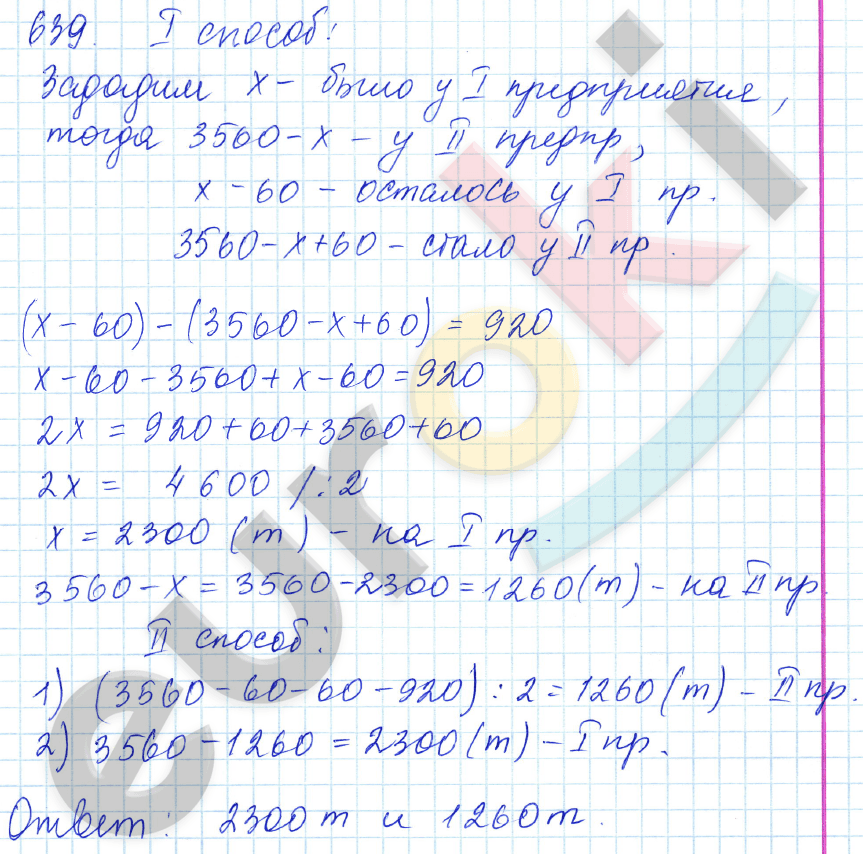 639. I способ:
Зададим x - было у I предприятия,
тогда 3560 - x - у II предпр,
x - 60 - осталось у I пр.
3560 - x + 60 - стало у II пр.
(x - 60) - (3560 - x + 60) = 920
x - 60 - 3560 + x - 60 = 920
2x = 920 + 60 + 3560 + 60
2x = 4600 /:2
x = 2300 (т) - на I пр.
3560 - x = 3560 - 2300 = 1260 (т) - на II пр.
II способ:
1) (3560 - 60 - 60 - 920) : 2 = 1260 (т) - II пр.
2) 3560 - 1260 = 2300 (т) - I пр.
Ответ: 2300 т и 1260 т.
euroki